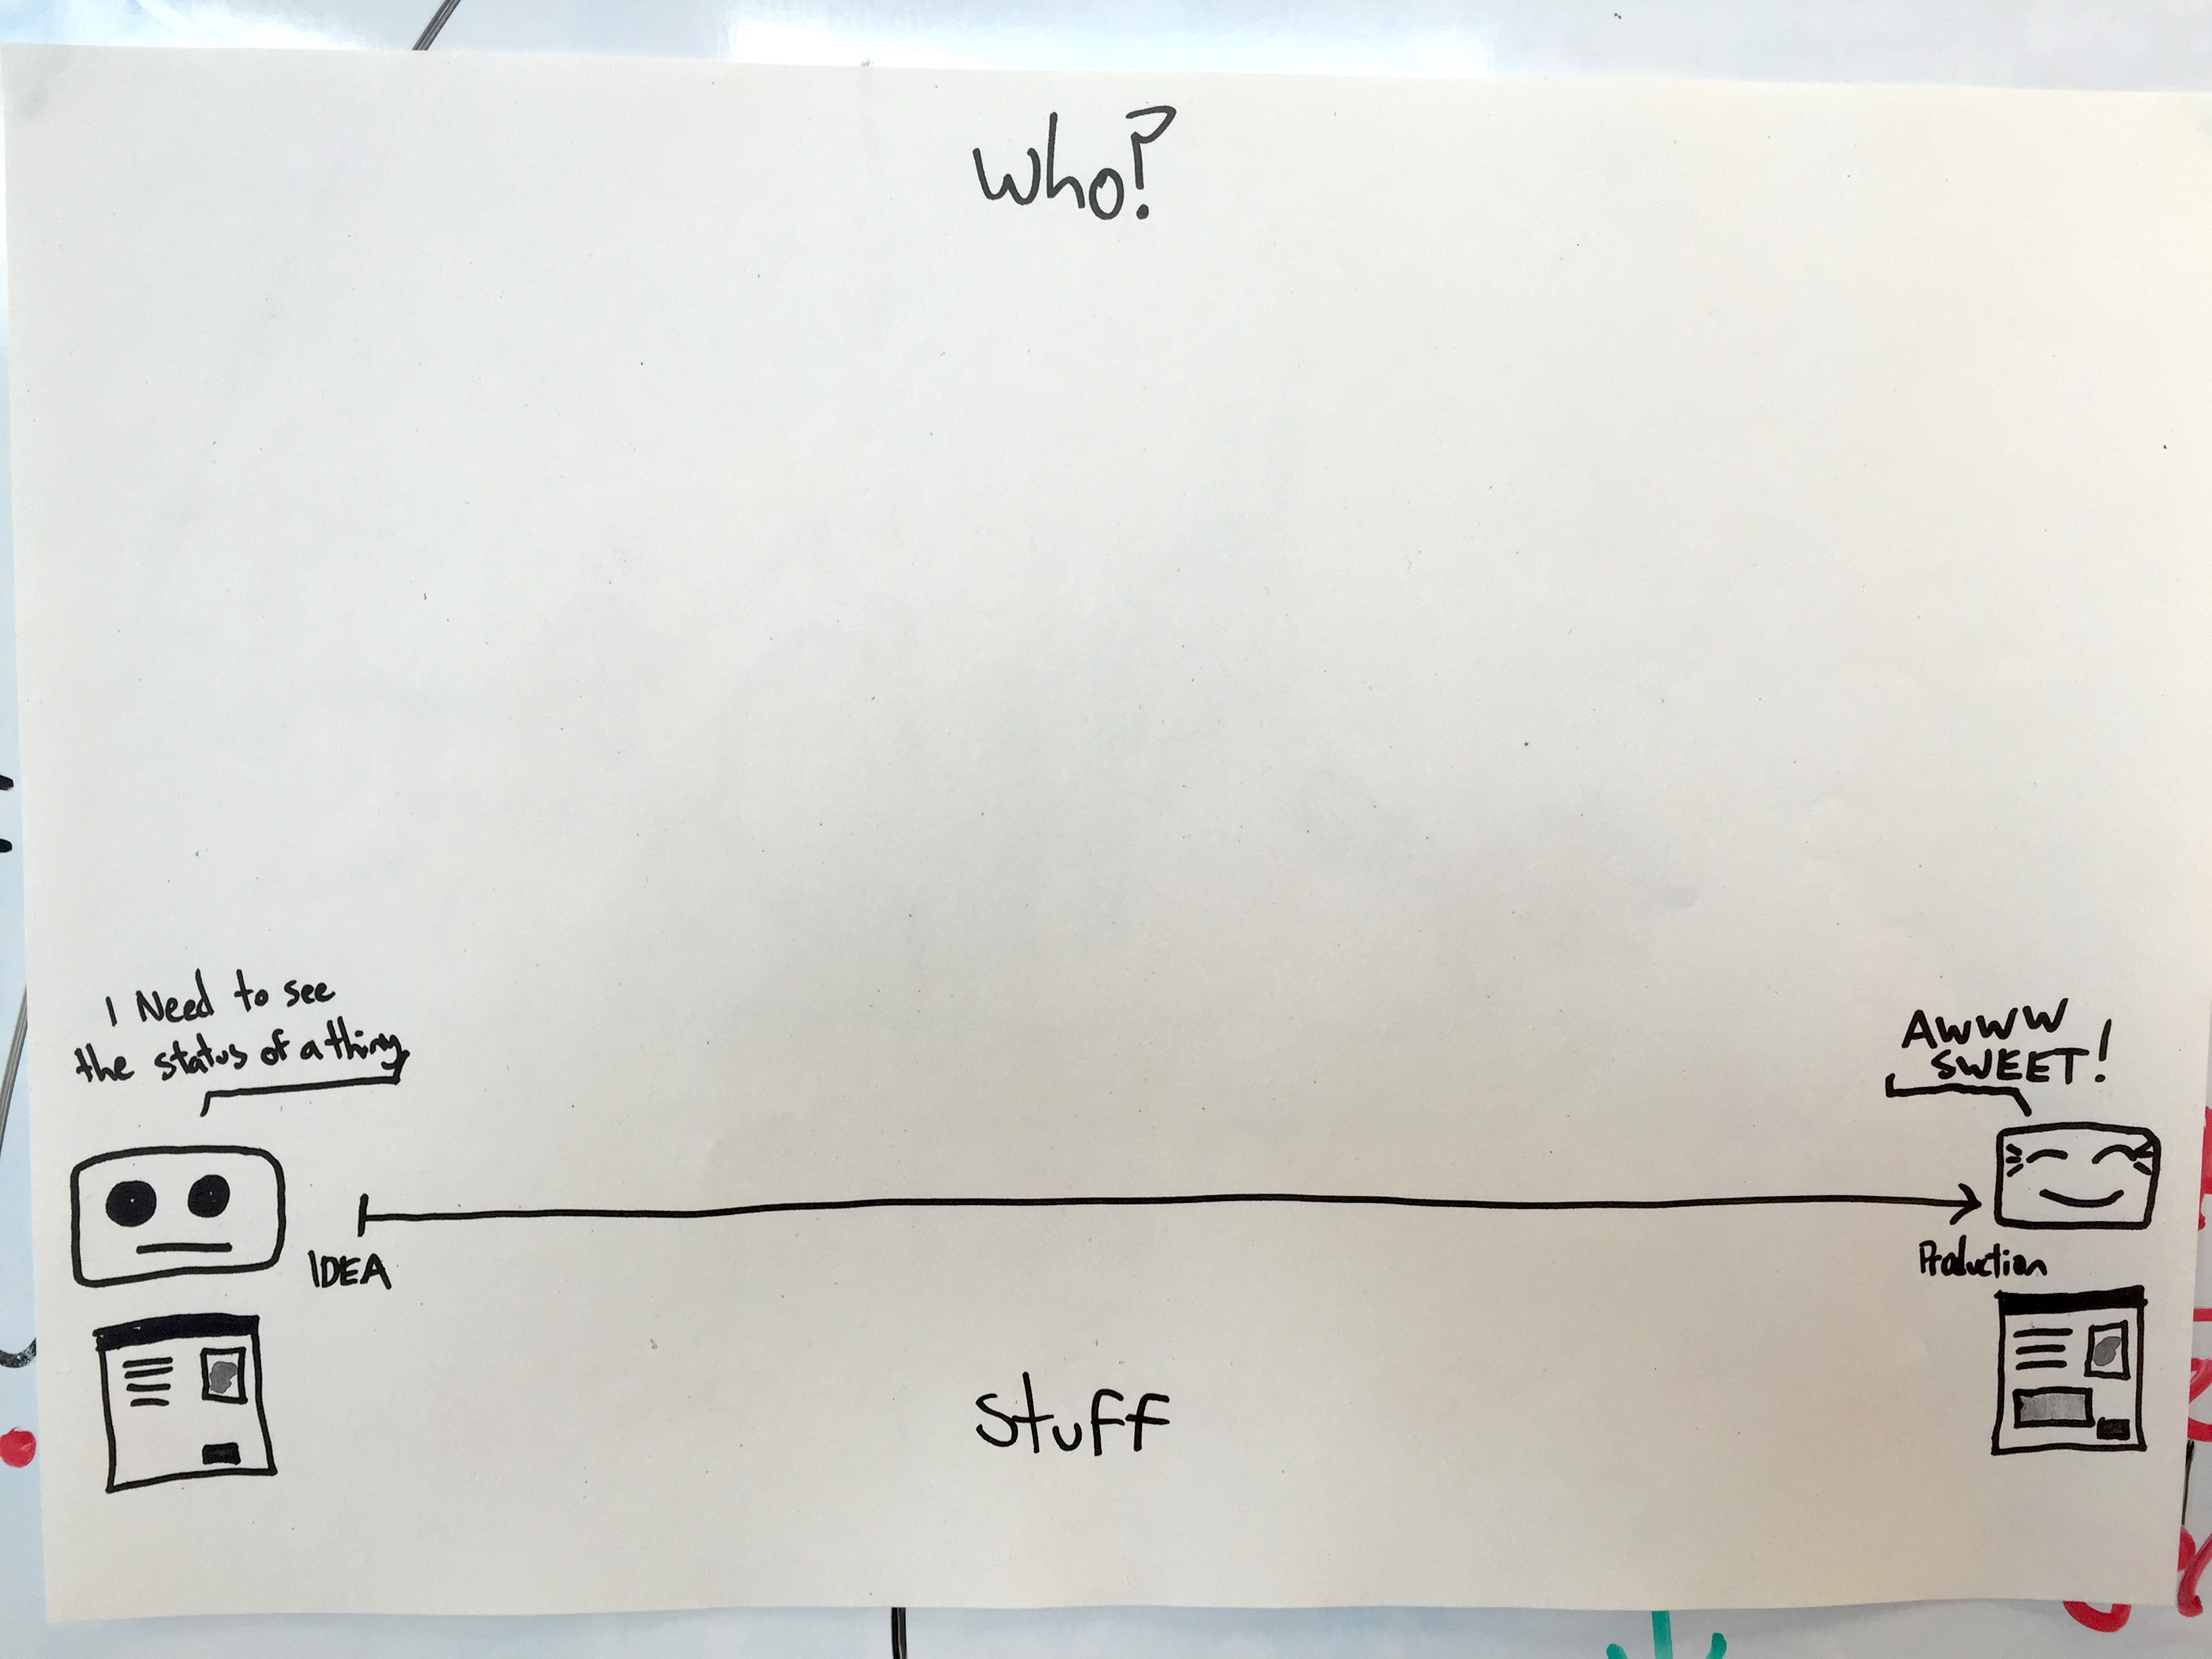 Who?
I Need to see
the status of a thing
AWWW
SWEET!
IDEA
Production
Stuff